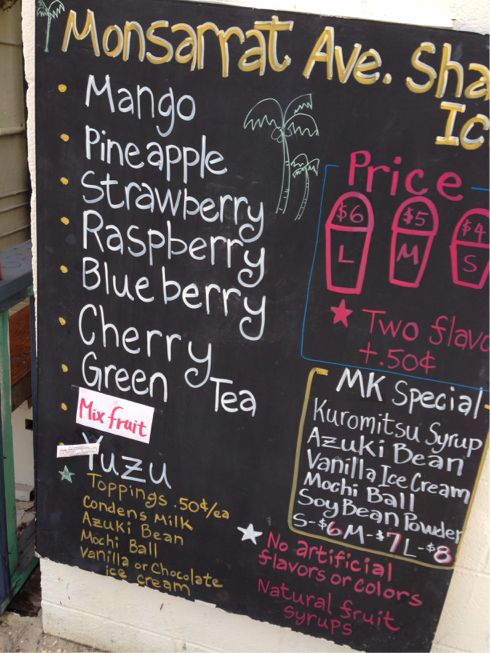 Monsarrat Ave. Sha
Ic
Mango
Pineapple
Strawberry
Raspberry
Blueberry
Cherry
Green Tea
Mix fruit
Yuzu
Toppings .50¢/ea
Condens Milk
Azuki Bean
Mochi Ball
Vanilla or Chocolate
ice cream
Price
$6 $5 $4
L M S
Two flavo
+.50¢
MK Special
Kuromitsu Syrup
Azuki Bean
Vanilla Ice Cream
Mochi Ball
Soy Bean Powder
S-$6 M-$7 L-$8
No artificial
flavors or colors
Natural fruit
syrups